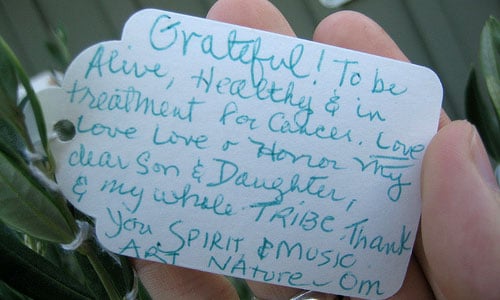 Grateful! To be
Alive, Healthy & in
treatment for Cancer. Love
Love Love & Honor my
dear Son & Daughter,
& my whole TRIBE. Thank
you. SPIRIT & MUSIC
ART NATURE - Om